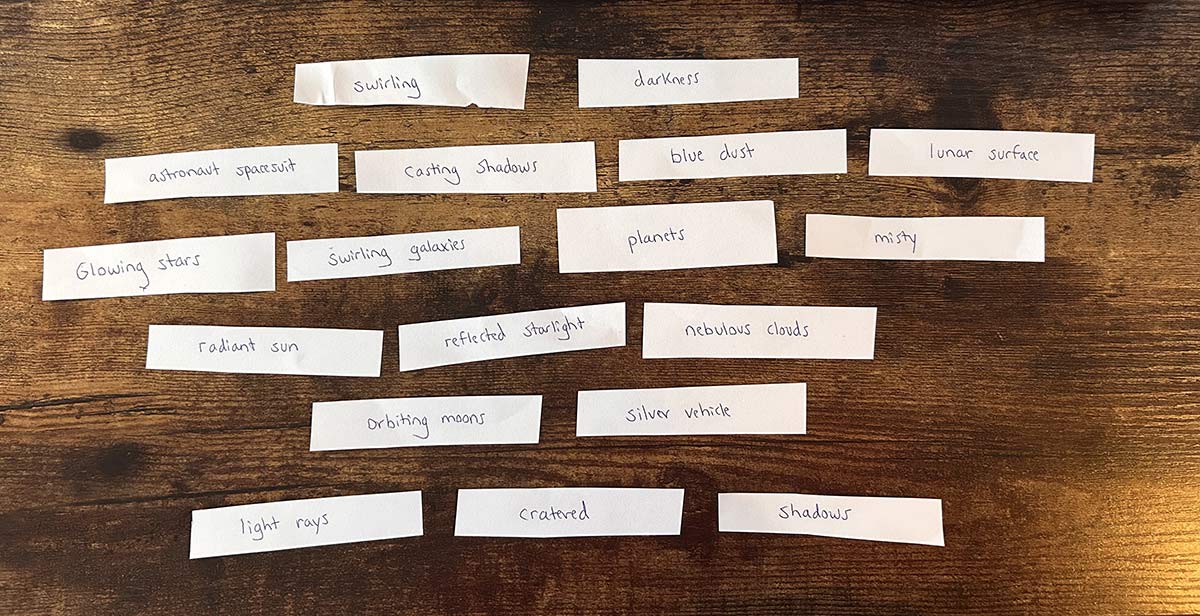 swirling
darkness
astronaut spacesuit
casting shadows
blue dust
lunar surface
Glowing stars
Swirling galaxies
planets
misty
radiant sun
reflected starlight
nebulous clouds
orbiting moons
silver vehicle
light rays
cratered
shadows